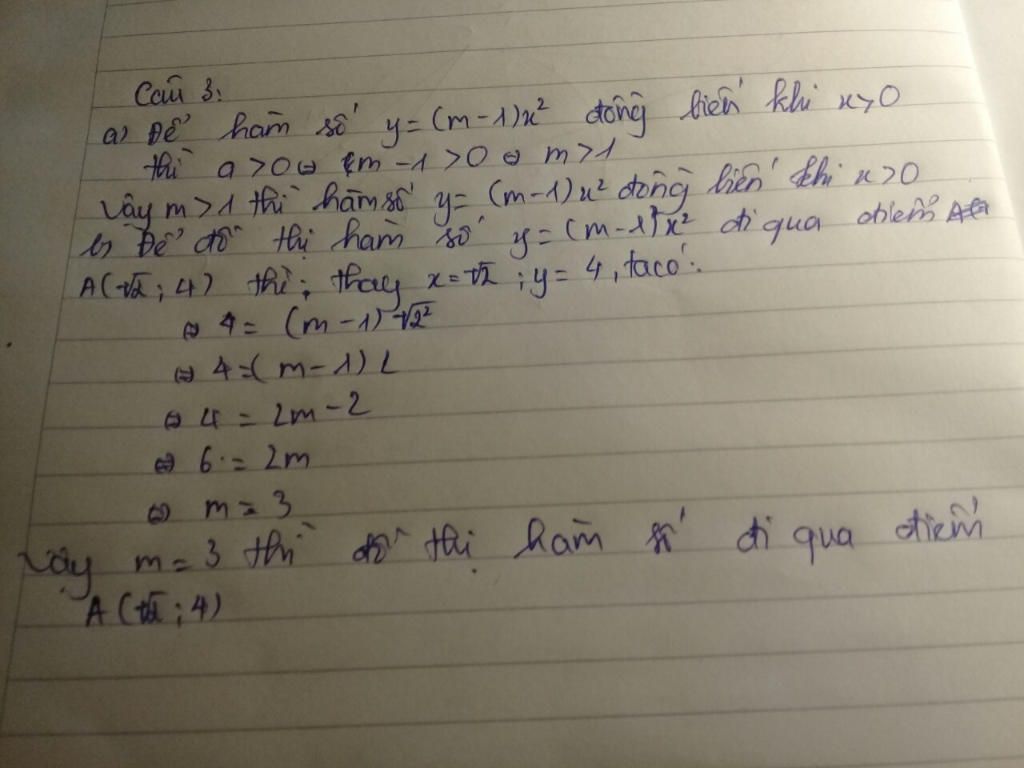 Câu 3:
a) Để hàm số y = (m-1)x² đồng biến khi x>0
thì a >0 ⇔ m-1 >0 ⇔ m>1
Vậy m >1 thì hàm số y = (m-1)x² đồng biến khi x>0
b) Để đồ thị hàm số y = (m-1)x² đi qua điểm
A(-√2; 4) thì: thay x = -√2; y = 4, ta có:
⇔ 4 = (m-1) -√2²
⇔ 4 = (m-1) 2
⇔ 4 = 2m-2
⇔ 6 = 2m
⇔ m = 3
Vậy m = 3 thì đồ thị hàm số đi qua điểm
A(-√2; 4)